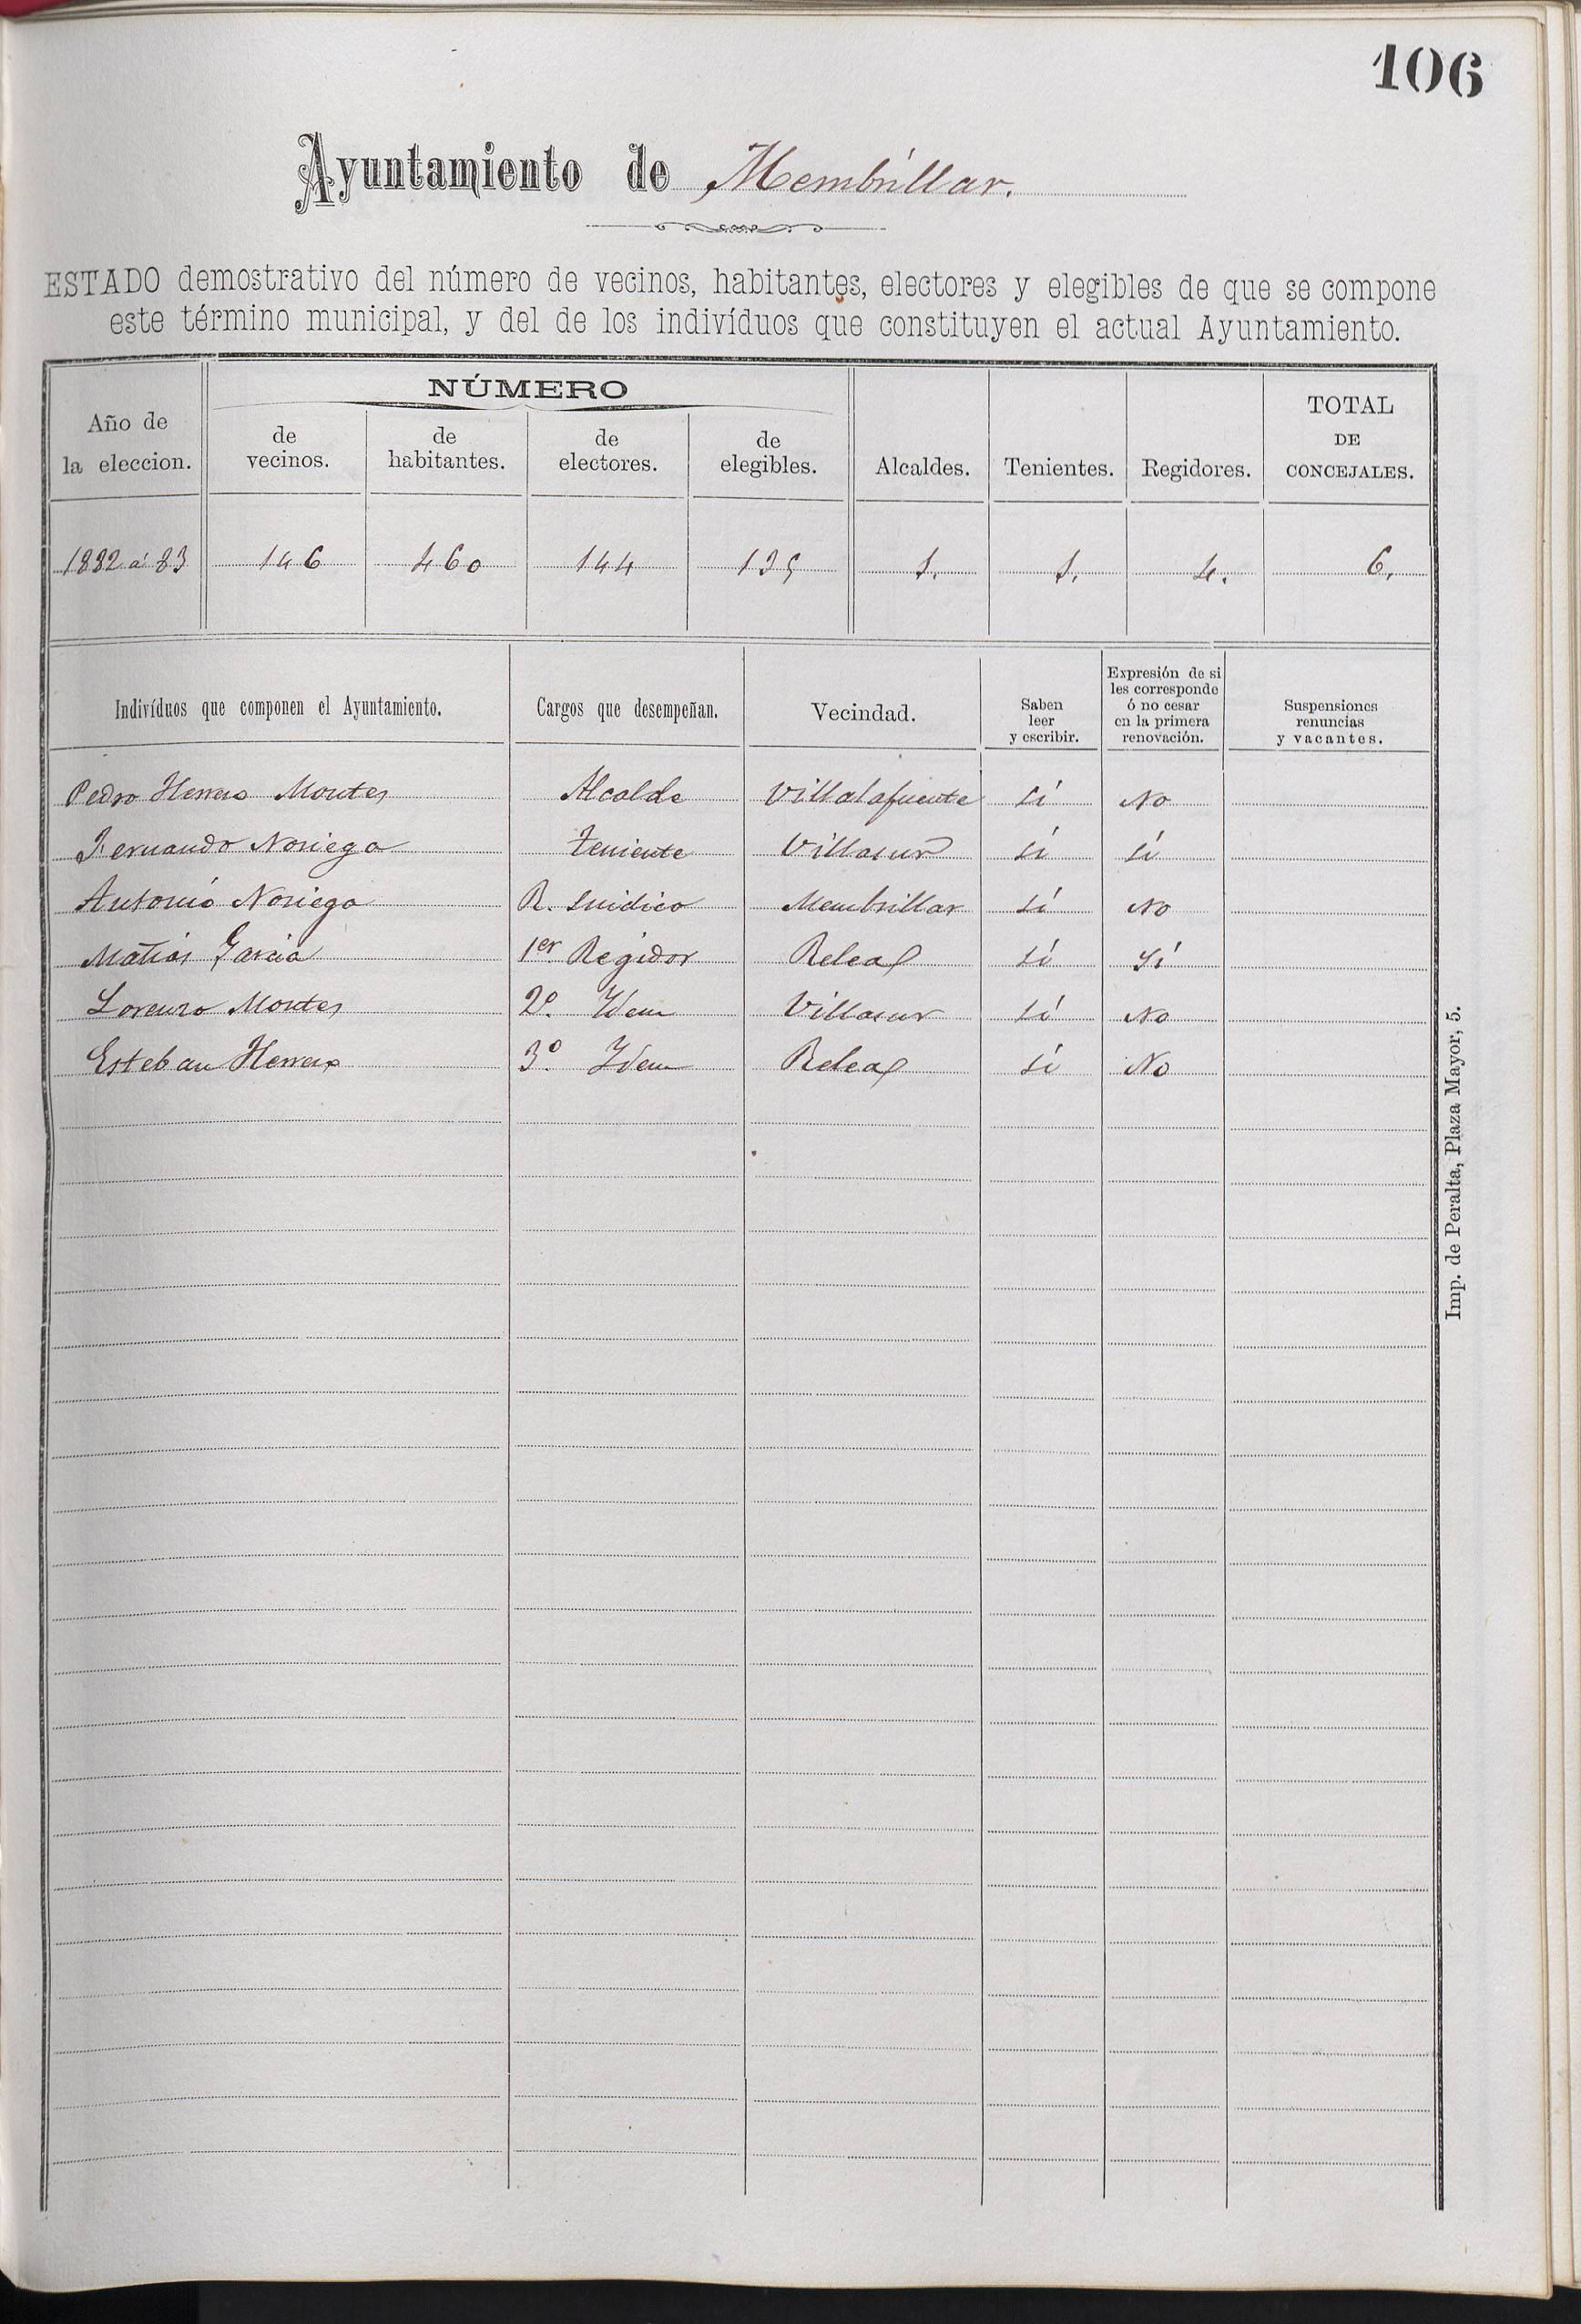 106
Ayuntamiento de Membrillar.
ESTADO demostrativo del número de vecinos, habitantes, electores y elegibles de que se compone
este término municipal, y del de los indivíduos que constituyen el actual Ayuntamiento.
Año de la eleccion. NÚMERO de vecinos. de habitantes. de electores. de elegibles. Alcaldes. Tenientes. Regidores. TOTAL DE CONCEJALES.
1882 á 83 146 460 144 135 1. 1. 4. 6.
Indivíduos que componen el Ayuntamiento. Cargos que desempeñan. Vecindad. Saben leer y escribir. Expresión de si les corresponde ó no cesar en la primera renovación. Suspensiones renuncias y vacantes.
Pedro Herrero Montes Alcalde Villalafuente Sí No
Fernando Noriega Teniente Villasur Sí Sí
Antonio Noriega R. Sindico Membrillar Sí No
Matías García 1er Regidor Relea Sí Sí
Lorenzo Montes 2º. Idem Villasur Sí No
Esteban Herrero 3º. Idem Relea Sí No
Imp. de Peralta, Plaza Mayor, 5.